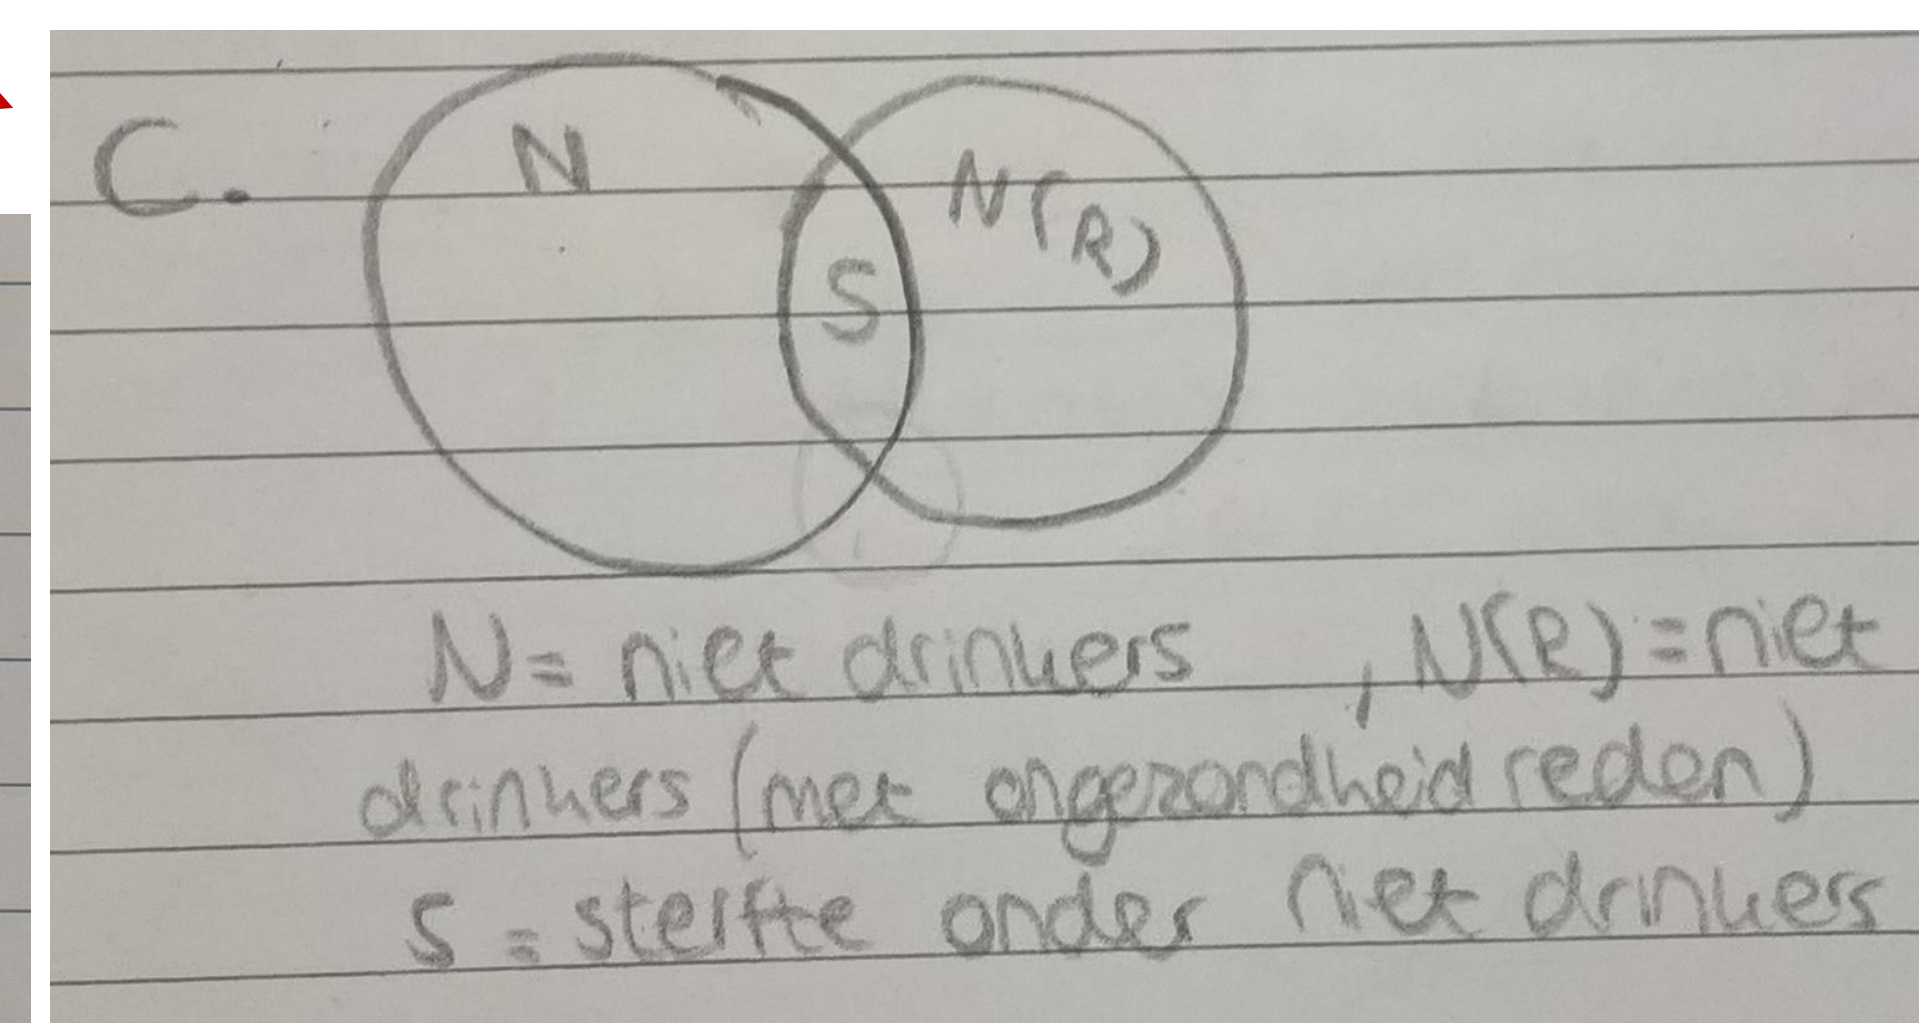 C.
N
N(R)
S
N = niet drinkers , N(R) = niet
drinkers (met ongezondheid reden)
S = sterfte onder niet drinkers